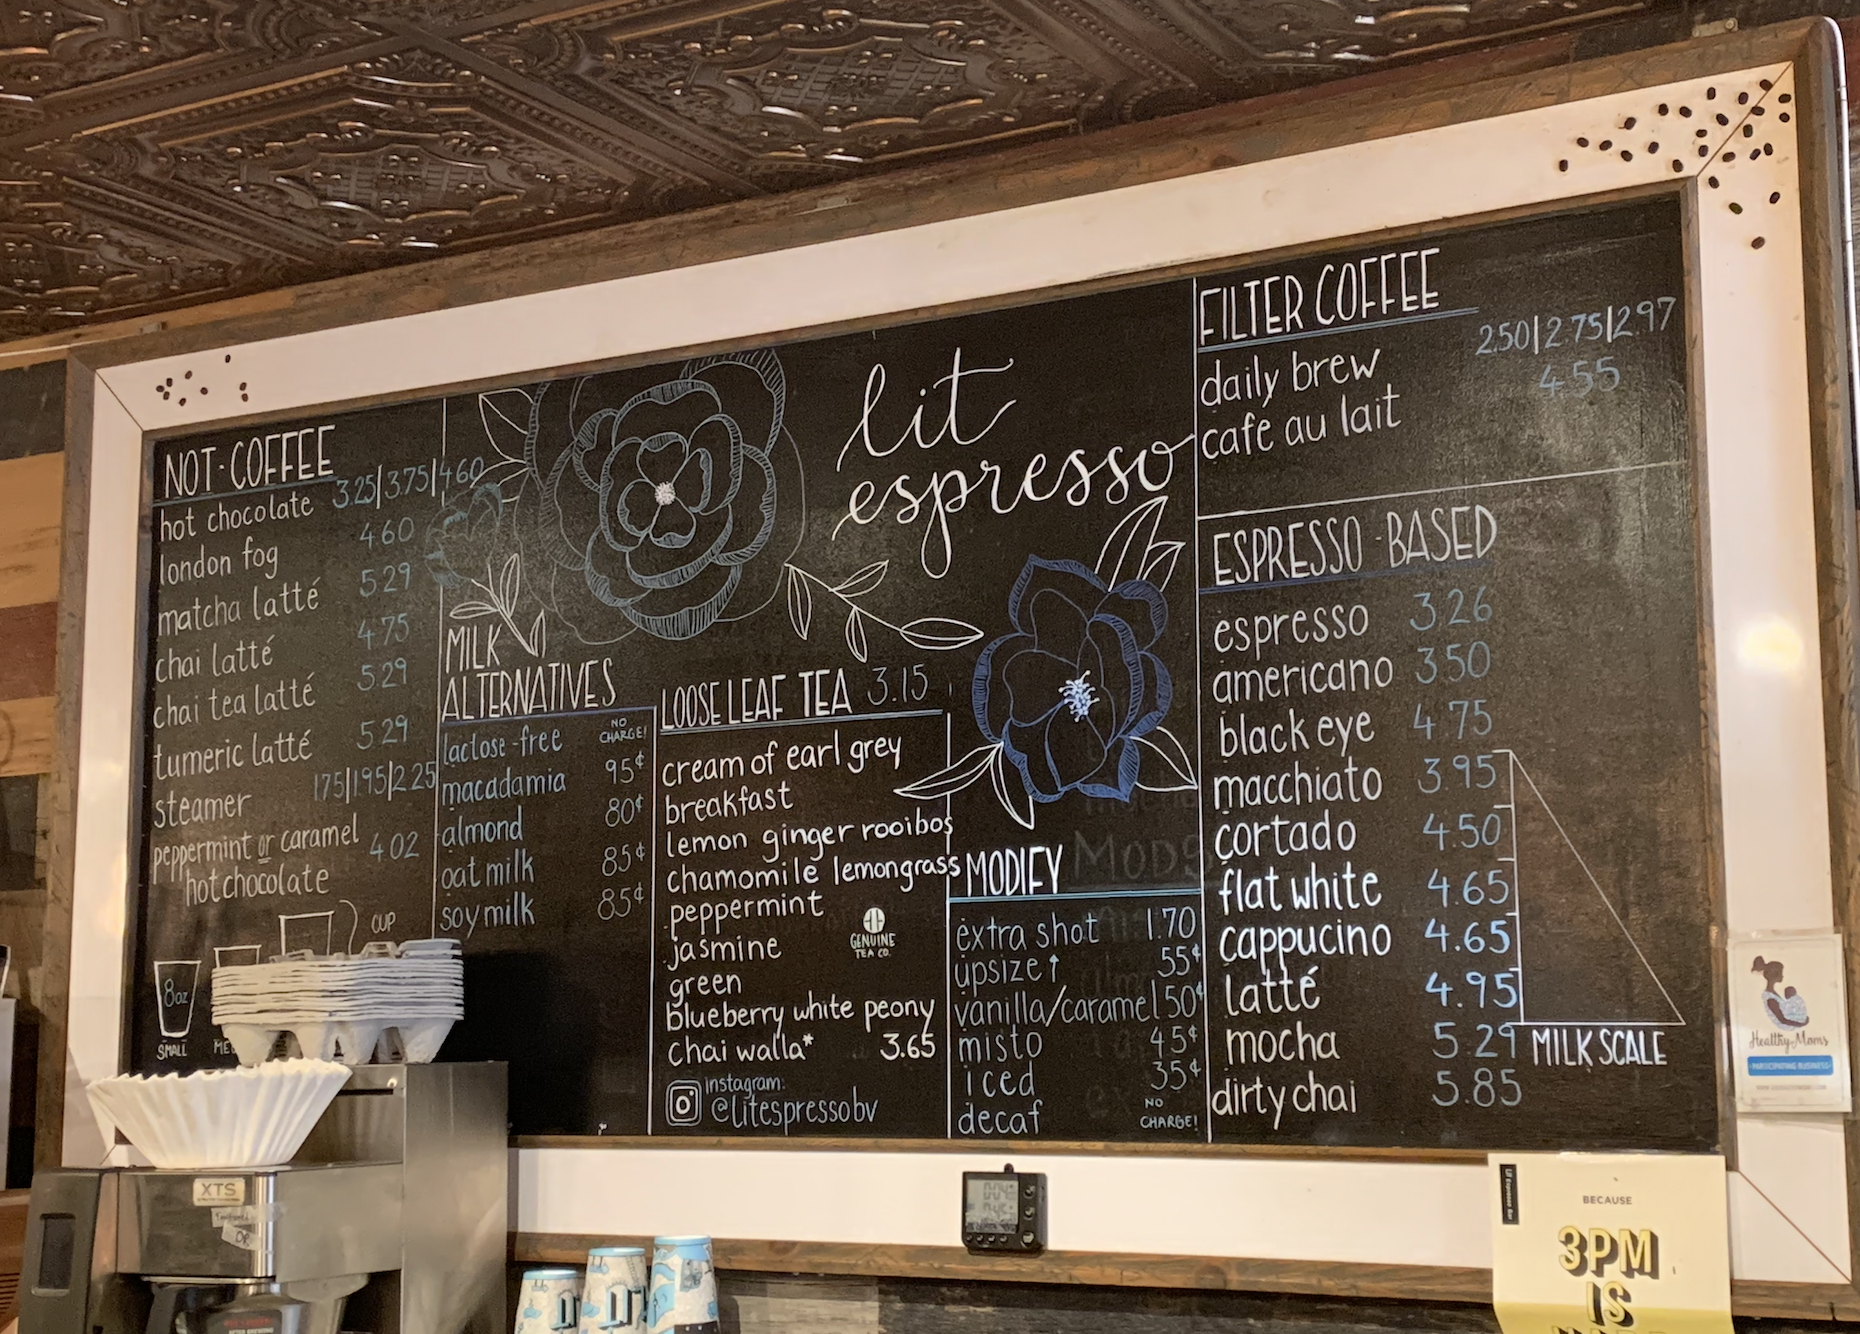 NOT-COFFEE
hot chocolate 3.25|3.75|4.60
london fog 4.60
matcha latté 5.29
chai latté 4.75
chai tea latté 5.29
tumeric latté 5.29
steamer 1.75|1.95|2.25
peppermint or caramel 4.02
hot chocolate
CUP
8oz
SMALL
MILK
ALTERNATIVES
lactose-free NO CHARGE!
macadamia 95¢
almond 80¢
oat milk 85¢
soy milk 85¢
lit
espresso
LOOSE LEAF TEA 3.15
cream of earl grey
breakfast
lemon ginger rooibos
chamomile lemongrass
peppermint
jasmine
green
blueberry white peony
Chai walla* 3.65
GENUINE
TEA CO.
instagram:
@litespressobv
MODIFY
MODS
extra shot 1.70
upsize↑ 55¢
vanilla/caramel 50¢
misto 45¢
iced 35¢
decaf NO CHARGE!
FILTER COFFEE
daily brew 2.50|2.75|2.97
cafe au lait 4.55
ESPRESSO-BASED
espresso 3.26
americano 3.50
black eye 4.75
macchiato 3.95
cortado 4.50
flat white 4.65
cappucino 4.65
latté 4.95
mocha 5.29
dirty chai 5.85
MILK SCALE
Healthy Moms
PARTICIPATING BUSINESS
Lit Espresso Bar
BECAUSE
3PM
IS
XTS